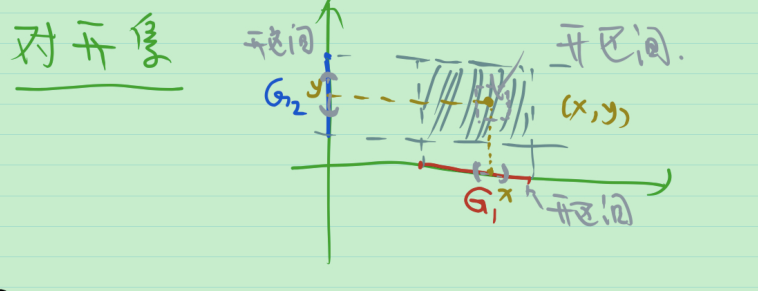 对开集
开区间
开区间.
G₂
y
(x, y)
G₁
x
开区间